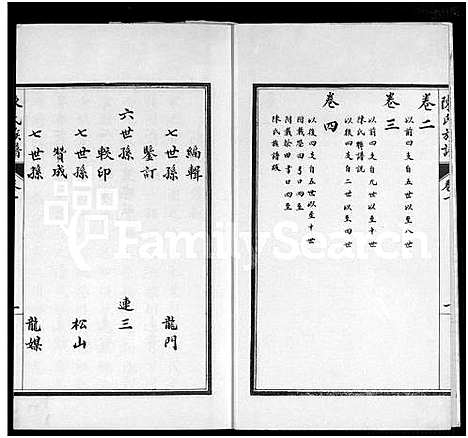 陳氏族譜
卷一
一
卷二
以前四支自五世以至八世
卷三
以前四支自九世以至十世
陳氏聯語說
以後四支自二世以至四世
卷四
以後四支自五世以至十世
附載
附載
陳氏族譜跋
編輯
七世孫 龍門
鑒訂
六世孫 連三
較印
七世孫 松山
贊成
七世孫 龍媒
氏族譜
一
FamilySearch